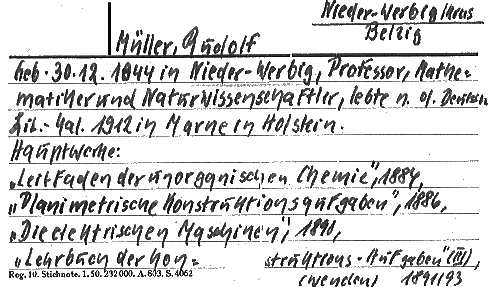 Nieder-Werbig Krs
Belzig
Müller, Rudolf
Geb. 30.12.1844 in Nieder-Werbig, Professor, Mathe=
matiker und Naturwissenschaftler, lebte n. d. Deutschen
Lit.-Kal. 1912 in Marne in Holstein.
Hauptwerke:
„Leitfaden der unorganischen Chemie", 1884,
„Planimetrische Konstruktionsaufgaben", 1886,
„Die elektrischen Maschinen", 1890,
„Lehrbuch der Kon= struktions-Aufgaben" (III),
Reg. 10. Stichnote. 1. 50. 232000. A. 803. S. 4062
(wenden) 1891/93